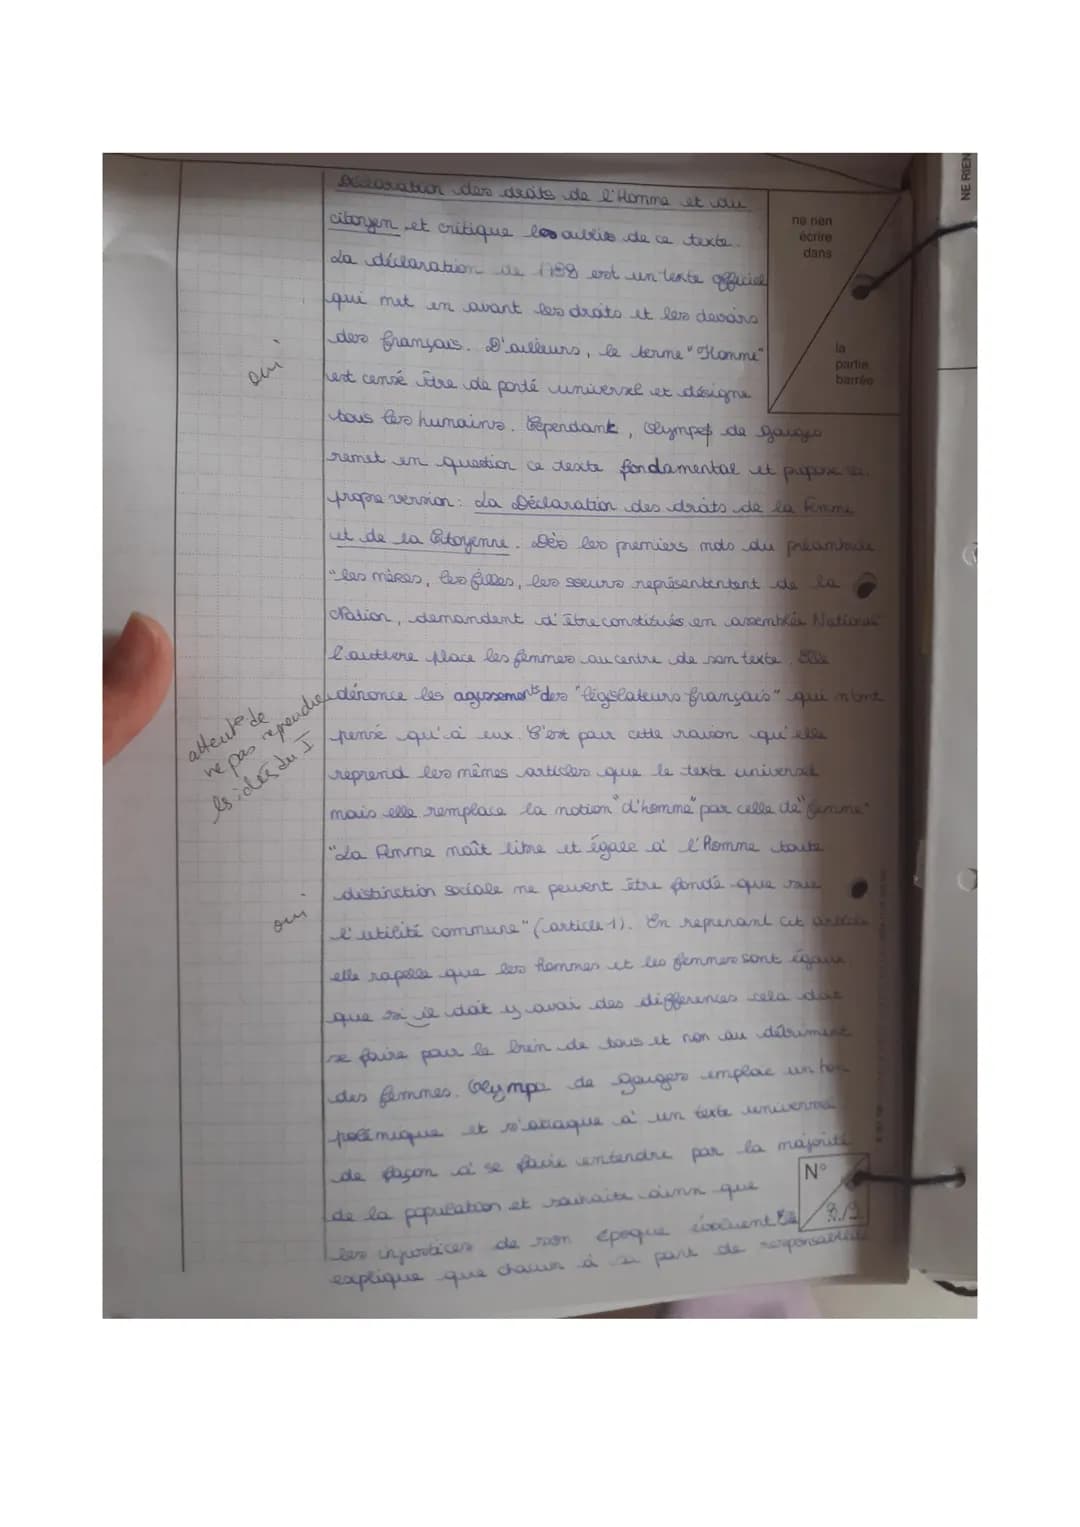 Déclaration des droits de l'Homme et du
citoyen et critique les oublis de ce texte.
La déclaration de 1789 est un texte officiel
qui met en avant les droits et les devoirs
des français. D'ailleurs, le terme "Homme"
est censé être de porté universel et désigne
tous les humains. Cependant, Olympes de Gouges
remet en question ce texte fondamental et propose sa
propre version: La Déclaration des droits de la Femme
et de la Citoyenne. Dès les premiers mots du préambule
"les mères, les filles, les soeurs représententent de la
Nation, demandent d'être constitués en assemblée National"
l'auttere place les femmes au centre de son texte. Elle
dénonce les agissements des "législateurs français" qui n'ont
pensé qu'à eux. C'est pour cette raison qu'elle
reprend les mêmes articles que le texte universel
mais elle remplace la notion "d'homme" par celle de "femme"
"La Femme naît libre et égale à l'Homme toute
distinction sociale ne peuvent être fondé que sur
l'utilité commune" (article 1). En reprenant cet article
elle rapelle que les hommes et les femmes sont égaux,
que si il doit y avoi des différences cela doit
se faire pour le bien de tous et non au détriment
des femmes. Olympe de Gouges emploie un ton
polémique et s'attaque à un texte universel
de façon à se faire entendre par la majorité
de la population et souhaite ainsi que
les injustices de son époque évoluent Elle
explique que chacun à sa part de responsabilité
oui
attente de
ne pas reprendre
les idées du I
oui
ne rien
écrire
dans
la
partie
barrée
NE RIEN
N°